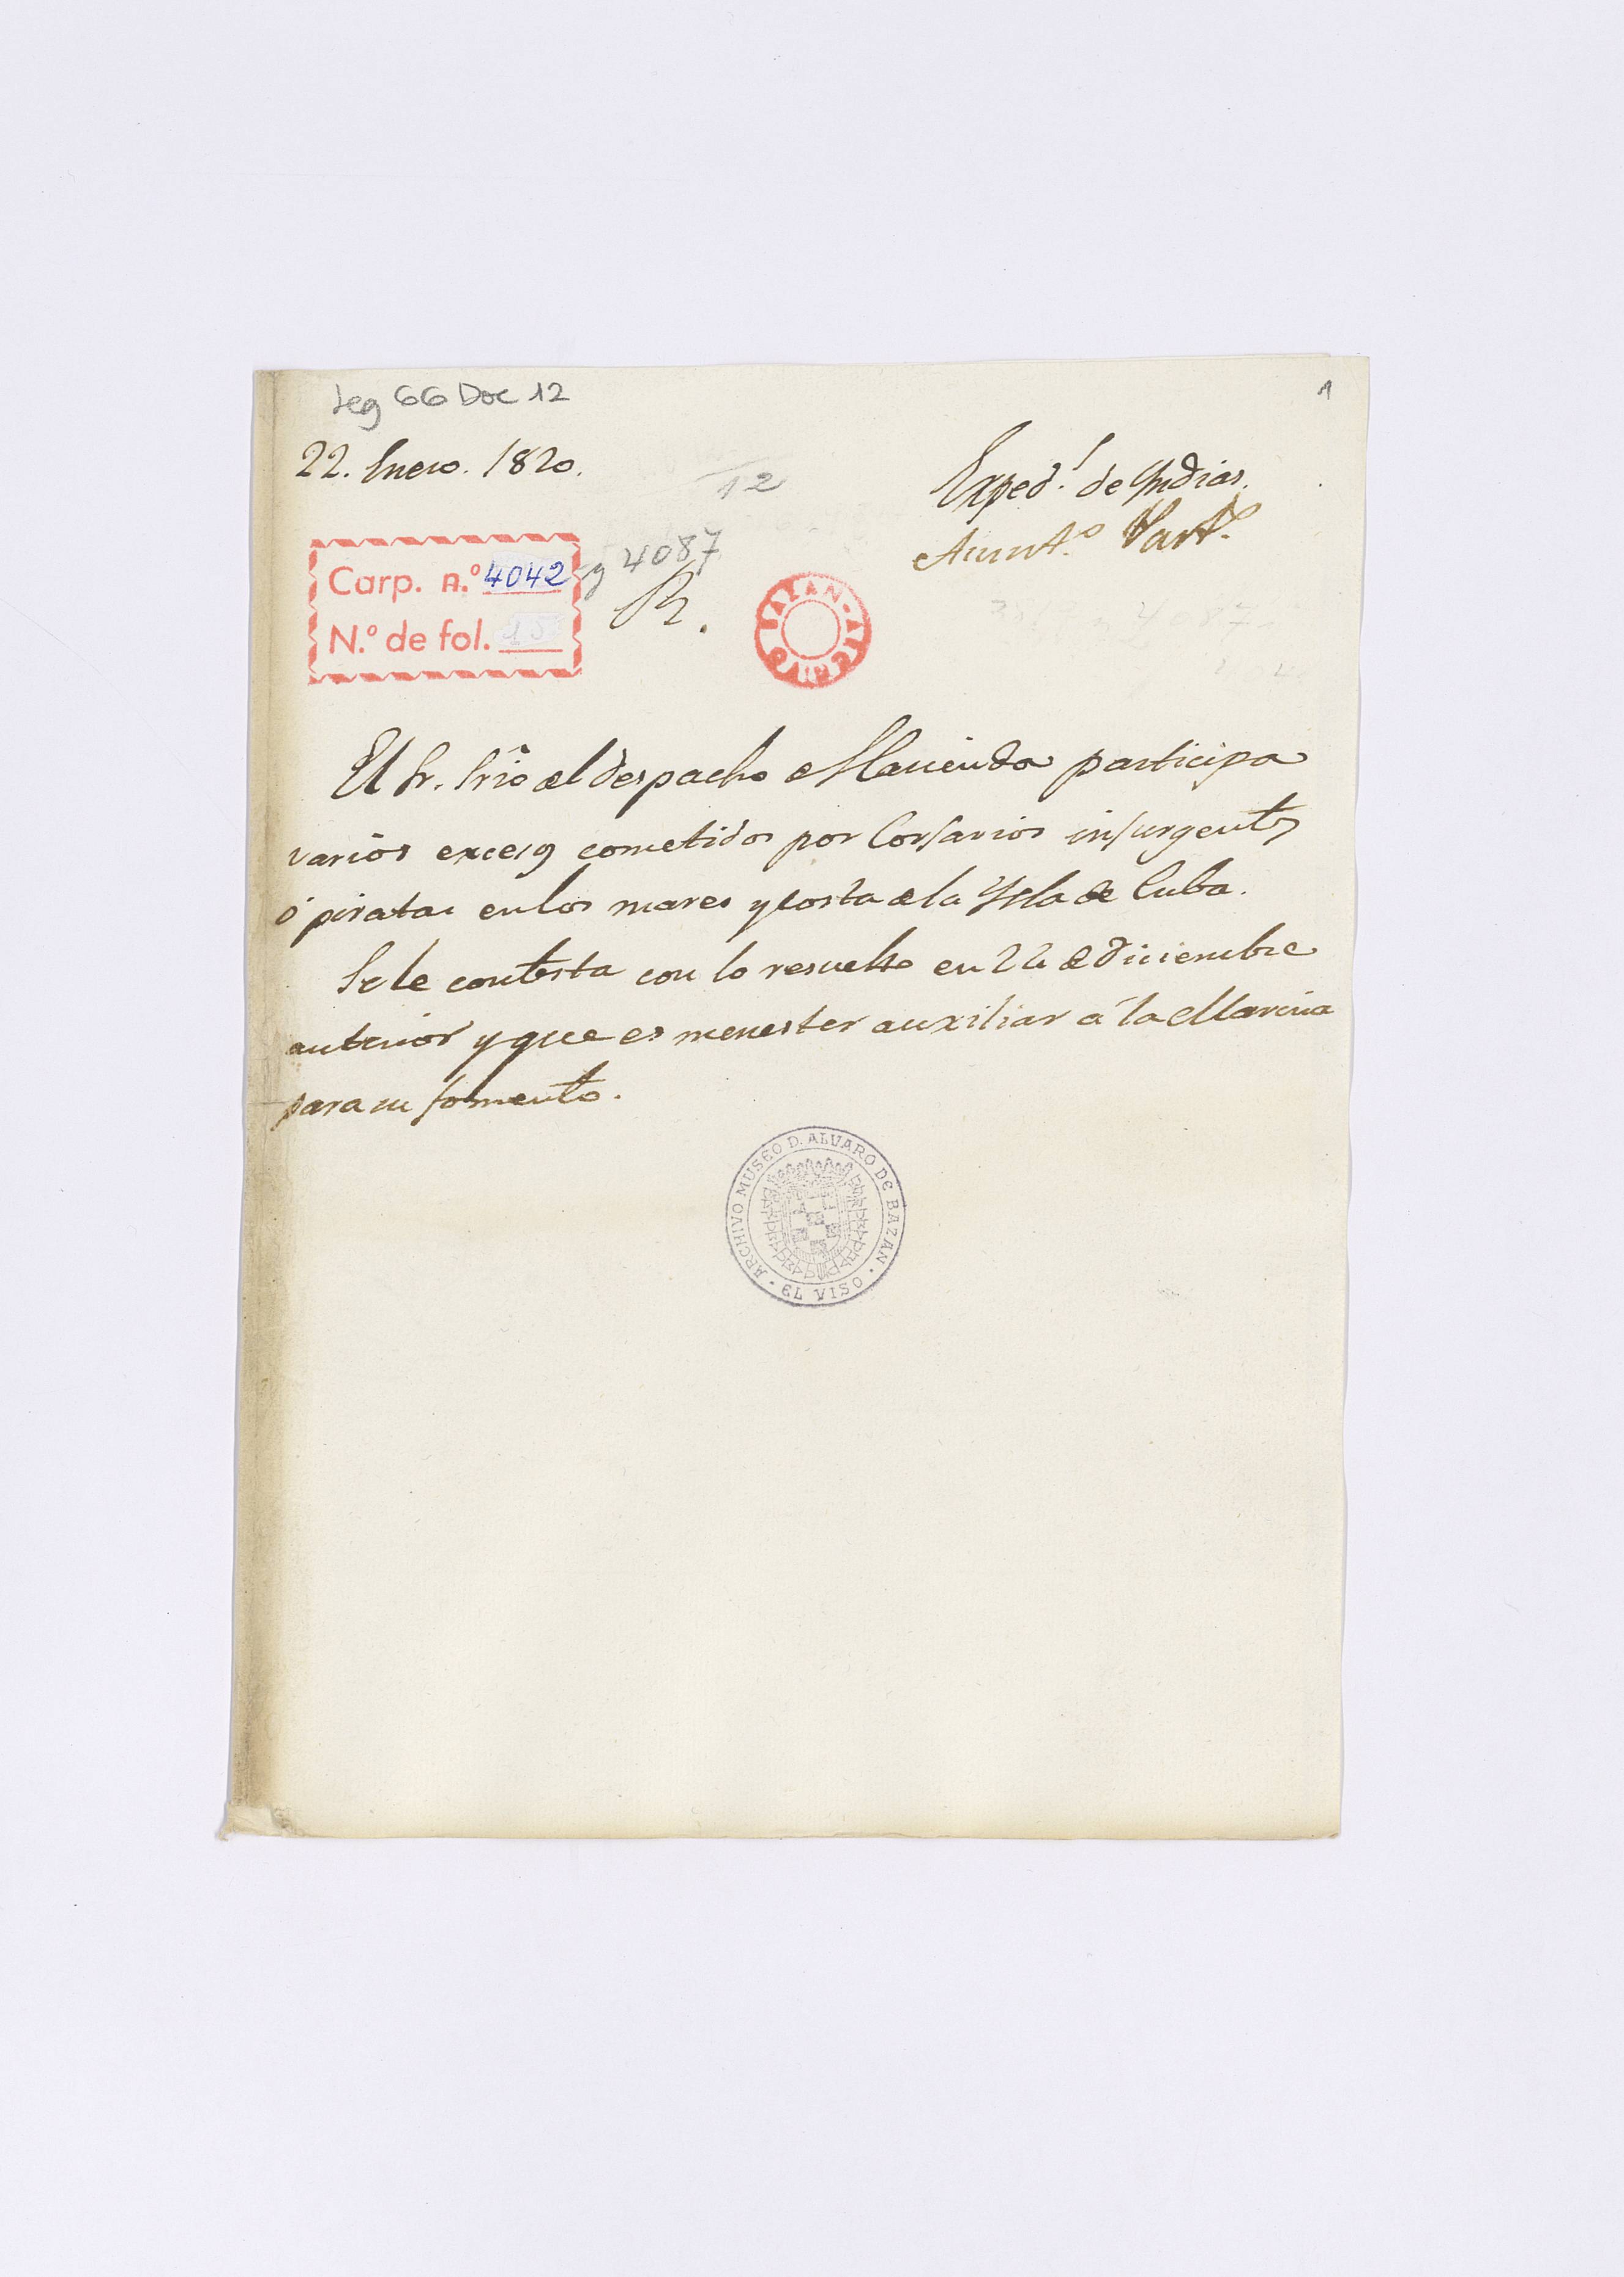 Leg 66 Doc 12
1
22. Enero. 1820.
12
Exped.^s de Yndias.
Asunt.^o Part.^s
Carp. n.º 4042 y 4087
N.º de fol. 15
R.
BAZAN-ARCHIVO
El Sr. Srio del despacho de Hacienda participa
varios excesos cometidos por Corsarios insurgentes
ó piratas en los mares y costa de la Ysla de Cuba.
Se le contesta con lo resuelto en 22 de Diciembre
anterior y que es menester auxiliar á la Marina
para su fomento.
ARCHIVO MUSEO D. ALVARO DE BAZAN · EL VISO ·